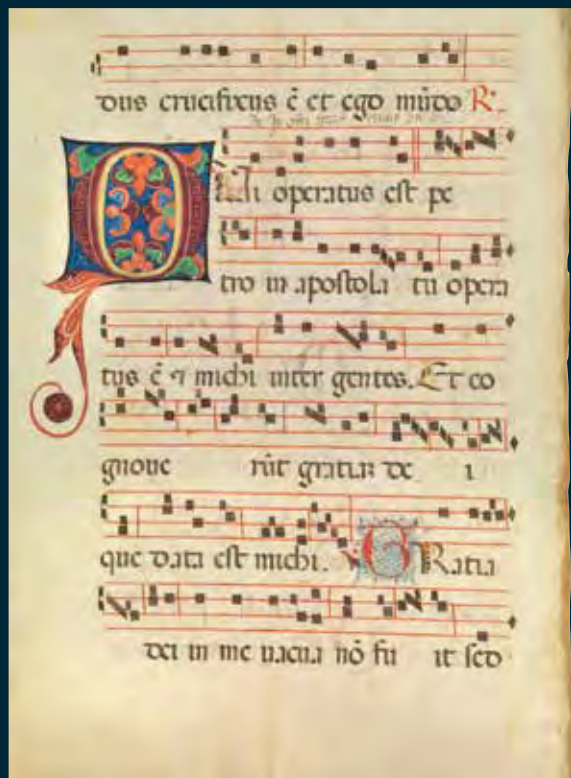 dus crucifixus ē et ego mūdo R.
Qui operatus est pe
tro in apostola tu opera
tus ē & michi inter gentes. Et co
gnove rūt gratiā de i
que data est michi. GRatia
dei in me vacua nō fu it sed